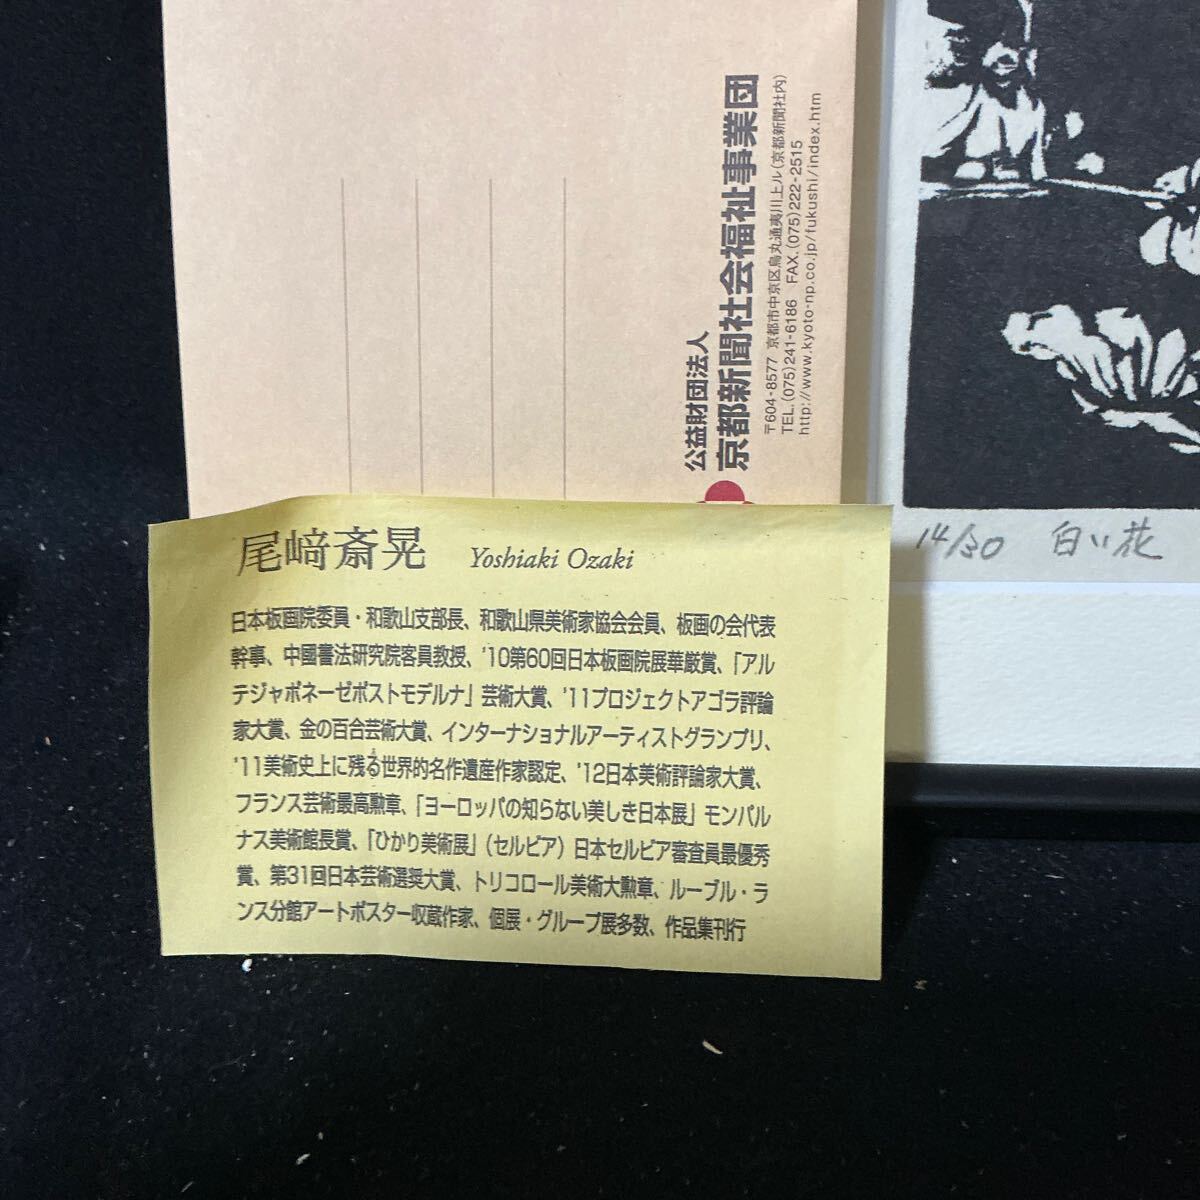 公益財団法人
京都新聞社会福祉事業団
〒604-8577 京都市中京区烏丸通夷川上ル(京都新聞社内)
TEL.(075)241-6186 FAX.(075)222-2515
http://www.kyoto-np.co.jp/fukushi/index.htm
14/30 白い花
尾﨑斎晃 Yoshiaki Ozaki
日本板画院委員・和歌山支部長、和歌山県美術家協会会員、板画の会代表
幹事、中國書法研究院客員教授、'10第60回日本板画院展華厳賞、「アル
テジャポネーゼポストモデルナ」芸術大賞、'11プロジェクトアゴラ評論
家大賞、金の百合芸術大賞、インターナショナルアーティストグランプリ、
'11美術史上に残る世界的名作遺産作家認定、'12日本美術評論家大賞、
フランス芸術最高勲章、「ヨーロッパの知らない美しき日本展」モンパル
ナス美術館長賞、「ひかり美術展」(セルビア)日本セルビア審査員最優秀
賞、第31回日本芸術選奨大賞、トリコロール美術大勲章、ルーブル・ラ
ンス分館アートポスター収蔵作家、個展・グループ展多数、作品集刊行